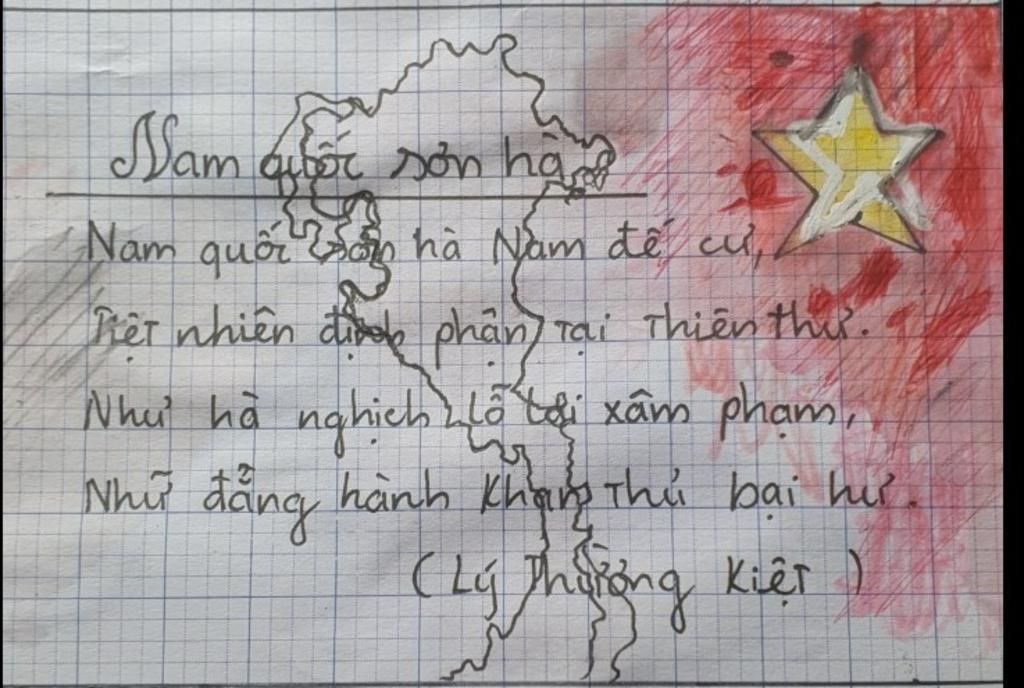 Nam quốc sơn hà
Nam quốc sơn hà Nam đế cư,
Tiệt nhiên định phận tại Thiên thư.
Như hà nghịch lỗ tới xâm phạm,
Nhữ đẳng hành Khan Thủ bại hư.
(Lý Thường Kiệt)